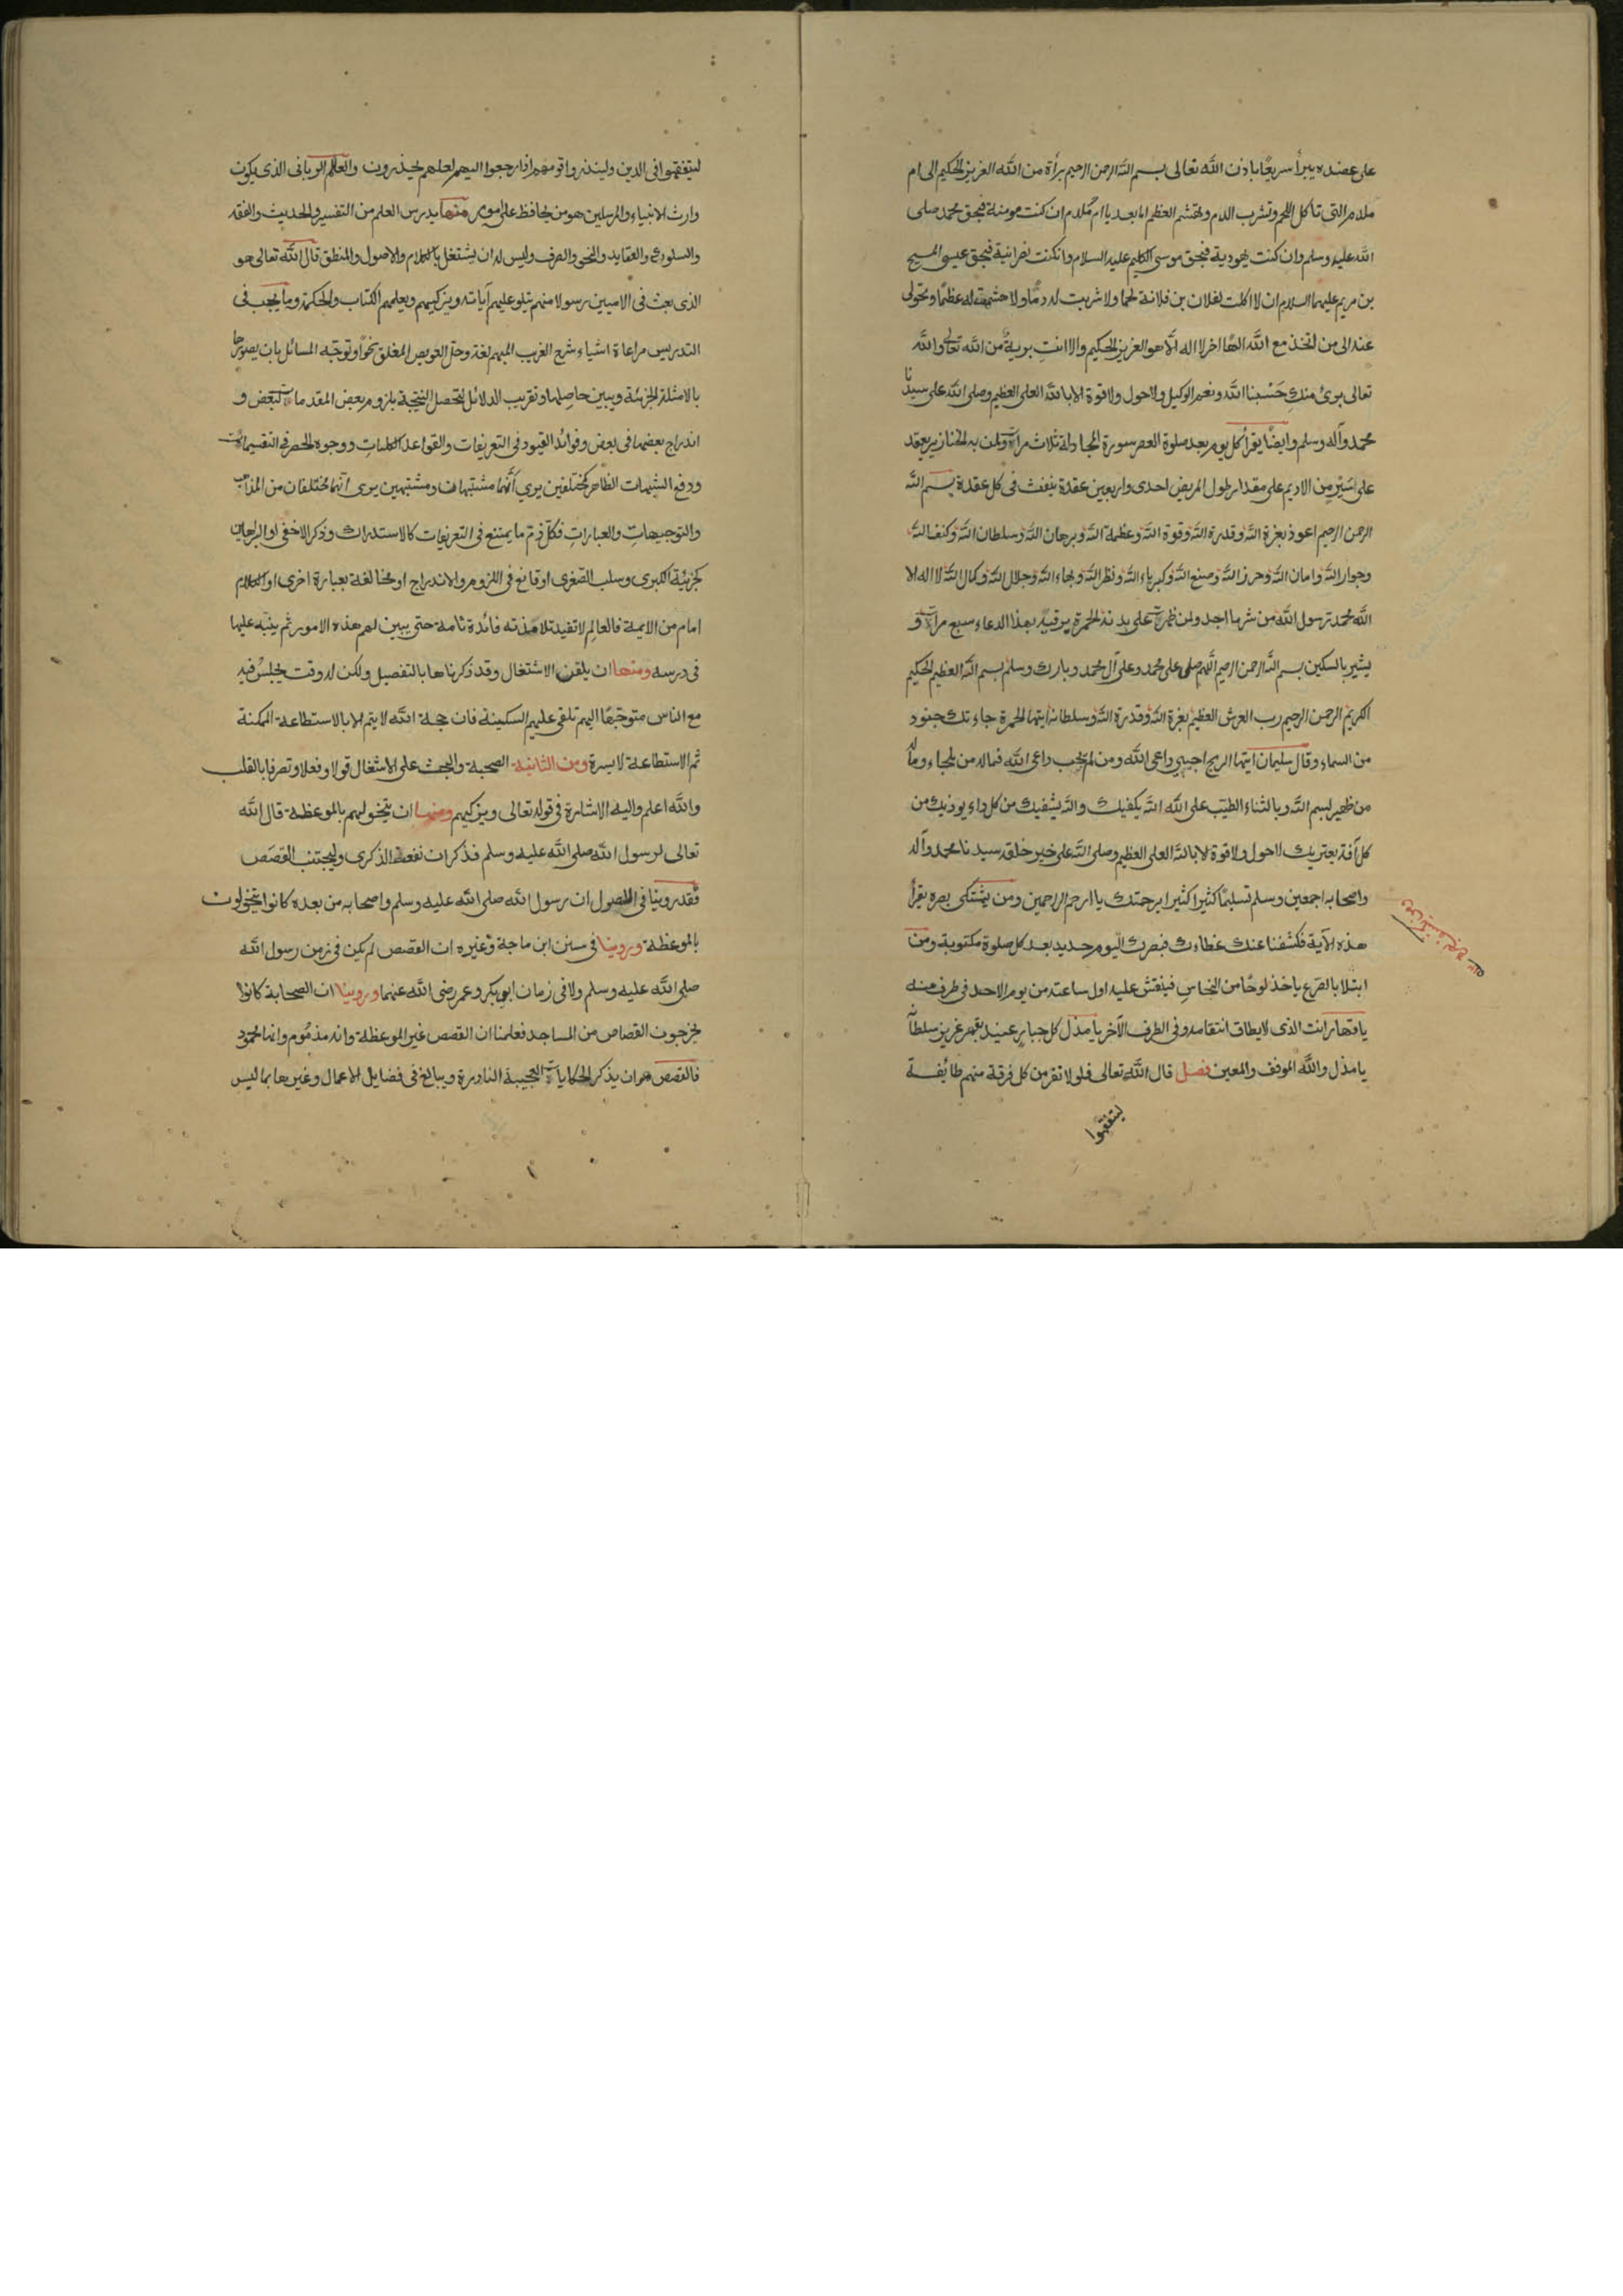 على عضده يبرأ سريعًا باذن الله تعالى بسم الله الرحمن الرحيم برأة من الله العزيز الحكيم الى ام
ملدم التى تاكل اللحم وتشرب الدم وتهتشم العظم اما بعد يا ام ملدم ان كنت مومنة فبحق محمد صلى
الله عليه وسلم وان كنت يهودية فبحق موسى الكليم عليه السلام وان كنت نصرانية فبحق عيسى المسيح
بن مريم عليهما السلام ان لا اكلت لفلان بن فلانة لحما ولا شربت له دمًا ولا هشمت له عظمًا وتحولى
عنه الى من اتخذ مع الله الها اخر لا اله الا هو العزيز الحكيم والا انت برية من الله تعالى والله
تعالى برئ منك حسبنا الله ونعم الوكيل ولا حول ولا قوة الا بالله العلى العظيم وصلى الله على سيدنا
محمد وآله وسلم وايضًا يقرأ كل يوم بعد صلوة العصر سورة المجادلة ثلاث مرات ولمن به الخنازير يعقد
على سير من الاديم على مقدار طول المريض احدى واربعين عقدة ينفث فى كل عقدة بسم الله
الرحمن الرحيم اعوذ بعزة الله وقدرة الله وقوة الله وعظمة الله وبرهان الله وسلطان الله وكنف الله
وجوار الله وامان الله وحرز الله وصنع الله وكبرياء الله ونظر الله وبهاء الله وجلال الله وكمال الله لا اله الا
الله محمد رسول الله من شر ما اجد ولمن ظهرت على بدنه الحمرة يرقيه بهذا الدعاء سبع مرات و
يشير بالسكين بسم الله الرحمن الرحيم اللهم صلى على محمد وعلى آل محمد وبارك وسلم بسم الله العظيم الحكيم
الكريم الرحمن الرحيم رب العرش العظيم بعزة الله وقدرة الله وسلطانه ايتها الحمرة جاءتك جنود
من السماء وقال سليمان ايتها الريح اجيبى داعى الله ومن لم يجب داعى الله فماله من ملجاء وماله
من ظهير بسم الله وبالثناء الطيب على الله الله يكفيك والله يشفيك من كل داء يوذيك من
كل آفة يعتريك لا حول ولا قوة الا بالله العلى العظيم وصلى الله على خير خلقه سيدنا محمد وآله
واصحابه اجمعين وسلم تسليمًا كثيرا كثيرا برحمتك يا ارحم الراحمين ومن يشتكى بصره يقرأ
هذه الآية فكشفنا عنك غطاءك فبصرك اليوم حديد بعد كل صلوة مكتوبة ومن
ابتلا بالصرع ياخذ لوحًا من النحاس فينقش عليه اول ساعته من يوم الاحد فى طرف منه
يا قهار انت الذى لا يطاق انتقامه وفى الطرف الآخر يا مذل كل جبار عنيد بقهر عزيز سلطانه
يا مذل والله الموفق والمعين فصل قال الله تعالى فلولا نفر من كل فرقة منهم طائفة
ليتفقهوا
ليتفقهوا فى الدين ولينذروا قومهم اذا رجعوا اليهم لعلهم يحذرون والعالم الربانى الذى يكون
وارث الانبياء والمرسلين هو من يحافظ على امور منها يدرس العلم من التفسير والحديث والفقه
والسلوك والعقايد والنحو والصرف وليس له ان يشتغل بالكلام والاصول والمنطق قال الله تعالى هو
الذى بعث فى الاميين رسولا منهم يتلو عليهم آياته ويزكيهم ويعلمهم الكتاب والحكمة وما يجب فى
التدريس مراعاة اشياء شرح الغريب المبهم لغة وحل العويص المغلق نحوًا وتوجيه المسائل بان يصورها
بالامثلة الجزئية ويبين حاصلها وتقريب الدلائل لتحصل النتيجة بلزوم بعض المقدمات لبعض و
اندراج بعضها فى بعض وفوائد القيود فى التعريفات والقواعد الكليات ووجوه الحصر فى التقسيمات
ودفع الشبهات الظاهر مختلفين يرى انهما مشتبهان ومشتبهين يرى انهما مختلفان من المذاهب
والتوجيهات والعبارات فكل ذم ما يمتنع فى التعريفات كالاستدراك وذكر الاخفى او البراهين
كجزئية الكبرى وسلب الصغرى او قانع فى اللزوم والاندراج او مخالفة بعبارة اخرى او الكلام
امام من الايمة فالعالم لا تفيد تلامذته فائدة تامة حتى يبين لهم هذه الامور ثم ينبه عليها
فى درسه ومنها ان يلقن الاشتغال وقد ذكرناها بالتفصيل ولكن له وقت يجلس فيه
مع الناس متوجهًا اليهم تلقى عليهم السكينة فان حجة الله لا يتم الا بالاستطاعة الممكنة
ثم الاستطاعة لا سيرة ومن الثانية الصحبة والحث على الاشغال قولا وفعلا وتصرفا بالقلب
والله اعلم واليه الاشارة فى قوله تعالى ويزكيهم ومنها ان يتخولهم بالموعظة قال الله
تعالى لرسول الله صلى الله عليه وسلم فذكر ان نفعت الذكرى وليجتنب القصص
فقد روينا فى الاصول ان رسول الله صلى الله عليه وسلم واصحابه من بعده كانوا يتخولون
بالموعظة وروينا فى سنن ابن ماجة وغيره ان القصص لم يكن فى زمن رسول الله
صلى الله عليه وسلم ولا فى زمان ابو بكر وعمر رضى الله عنهما وروينا ان الصحابة كانوا
يخرجون القصاص من المساجد فعلمنا ان القصص غير الموعظة وانه مذموم وانها محمود
فالقصص هو ان يذكر الحكايات العجيبة النادرة ويبالغ فى فضايل الاعمال وغيرها بما ليس